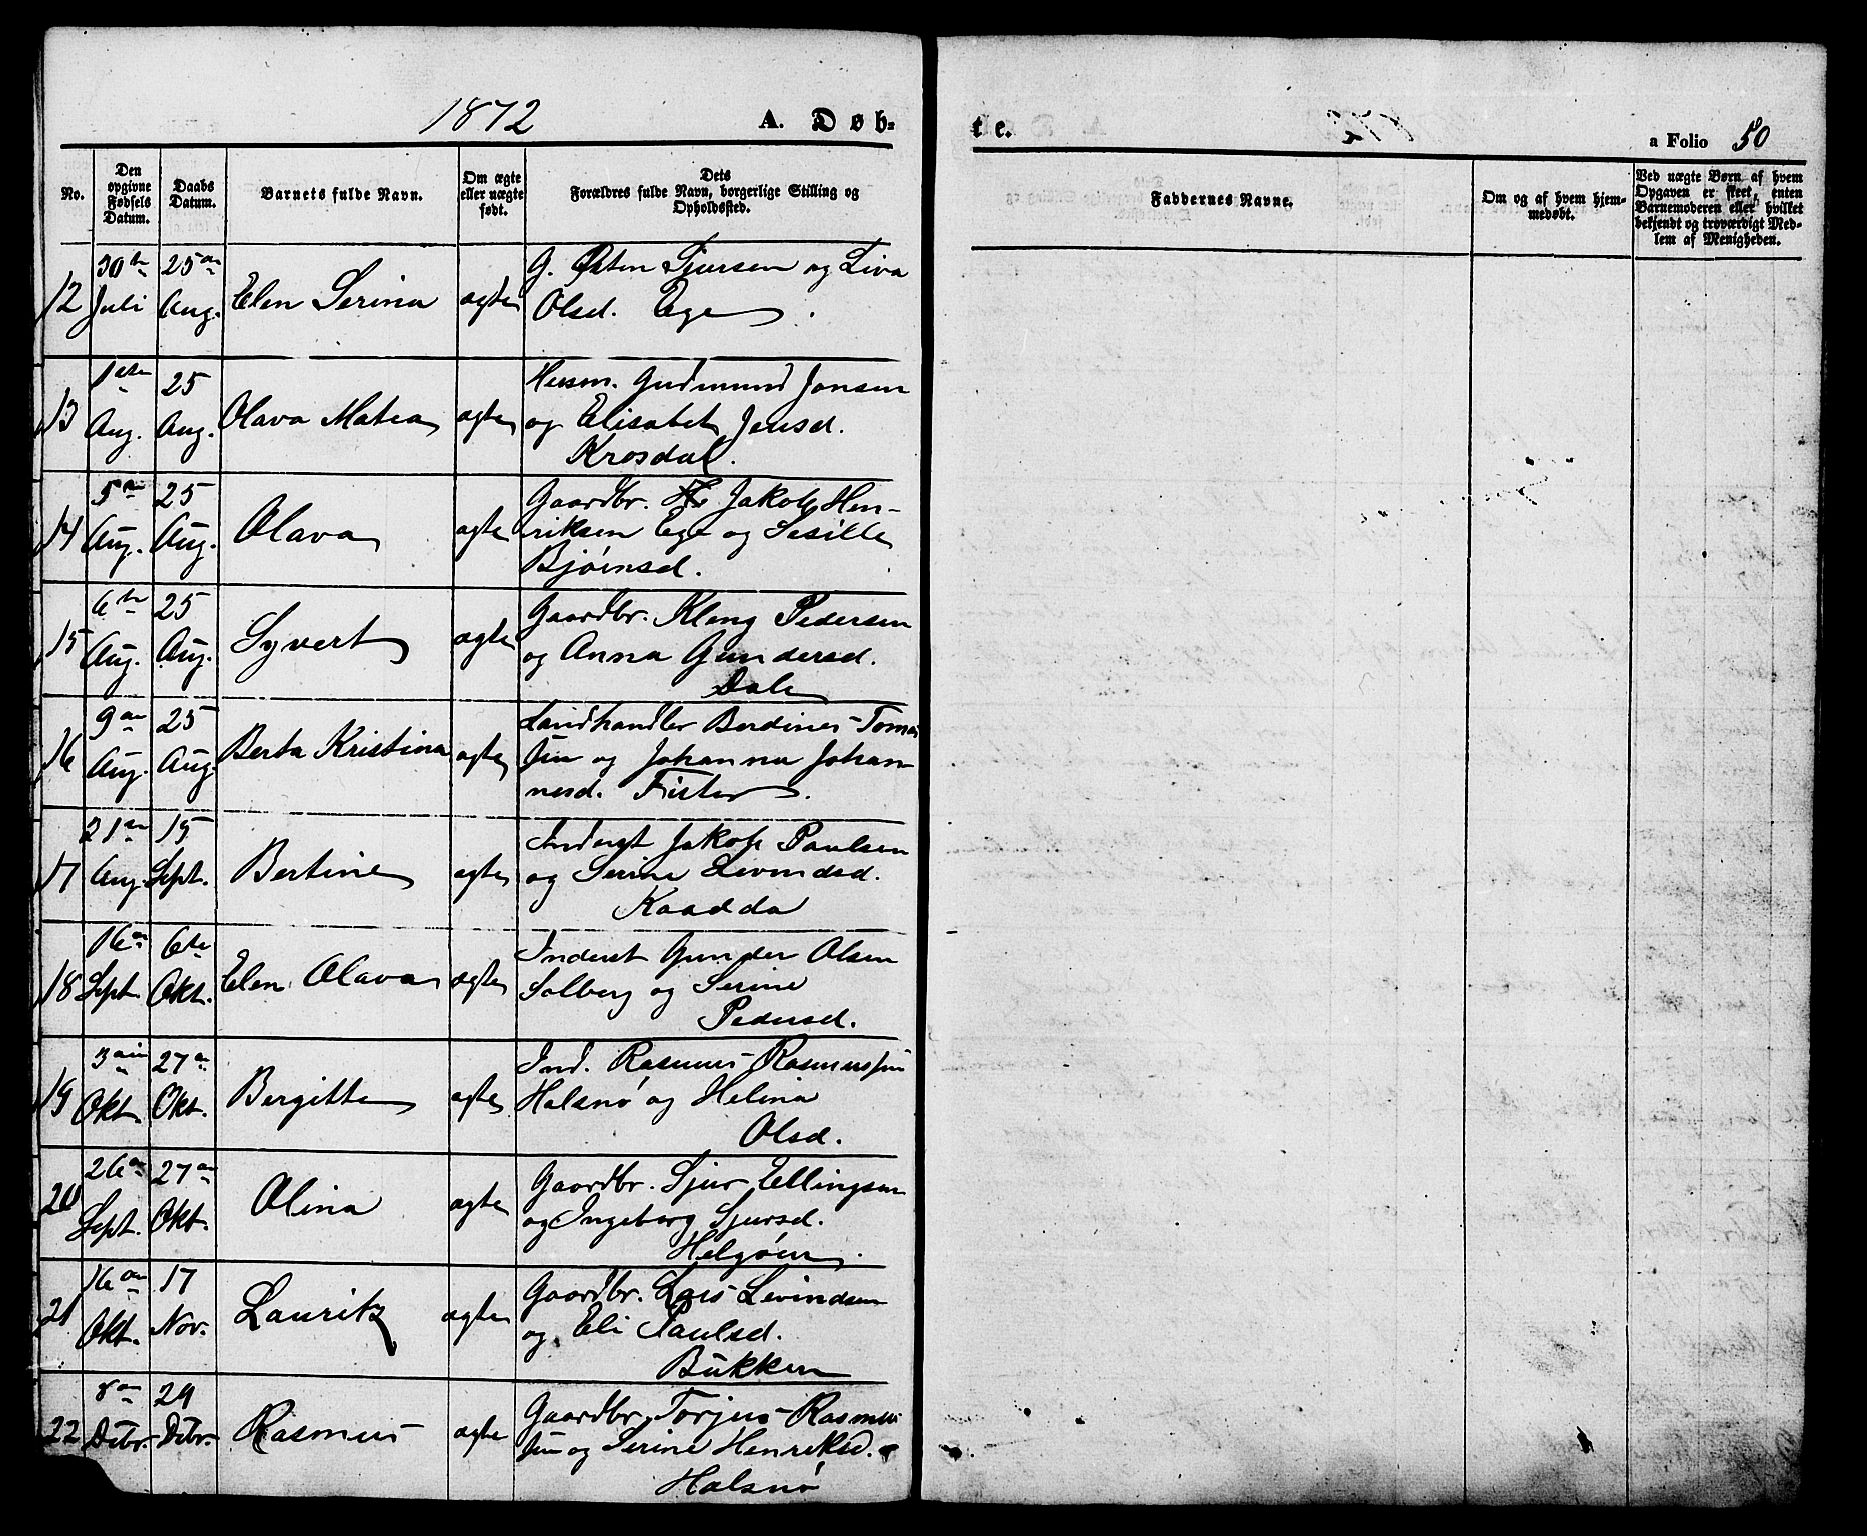 1872 A. Døb=
te. a Folio 50
No.
Den opgivne Fødsels Datum.
Daabs Datum.
Barnets fulde Navn.
Om ægte eller uægte født.
Dets Forældres fulde Navn, borgerlige Stilling og Opholdssted.
Faddernes Navne.
Om og af hvem hjemmedøbt.
Ved uægte Børn af hvem Opgaven er skeet, enten Barnemoderen eller hvilket bekjendt og troværdigt Medlem af Menigheden.
12 30te Juli 25de Aug. Elen Serina ægte
G. Østen Sjursen og Siva
Olsd. Ege.
13 1ste Aug. 25 Aug. Olava Matea ægte
Husm. Gudmund Jonsen
og Elisabet Jensd.
Krosdal.
14 5te Aug. 25 Aug. Olava ægte
Gaardbr. Jakob Hen-
riksen Ege og Sesille
Bjørnsd.
15 6te Aug. 25 Aug. Syvert ægte
Gaardbr. Kleng Pedersen
og Anna Gundersd.
Dale
16 9de Aug. 25 Aug Berta Kristina ægte
Landhandler Berdines Tomas
sen og Johanna Johan-
nesd. Fister.
17 21de Aug. 15 Sept. Bertine ægte
Inderst Jakob Paulsen
og Serine Levindsd.
Kaadda
18 16de Sept. 6te Okt. Elen Olava ægte
Inderst Gunder Olsen
Solberg og Serine
Pedersd.
19 3die Okt. 27de Okt. Bergitte ægte
Ind. Rasmus Rasmussen
Halsnø og Helina
Olsd.
20 26de Sept. 27de Okt. Olina ægte
Gaardbr. Sjur Ellingsen
og Ingeborg Sjursd.
Helgøen.
21 16de Okt. 17 Nov. Lauritz ægte
Gaardbr. Lars Levindsen
og Eli Paulsd.
Bukken
22 8de Debr. 29 Debr. Rasmus ægte
Gaardbr. Torjus Rasmus
sen og Serine Henriksd.
Halsnø